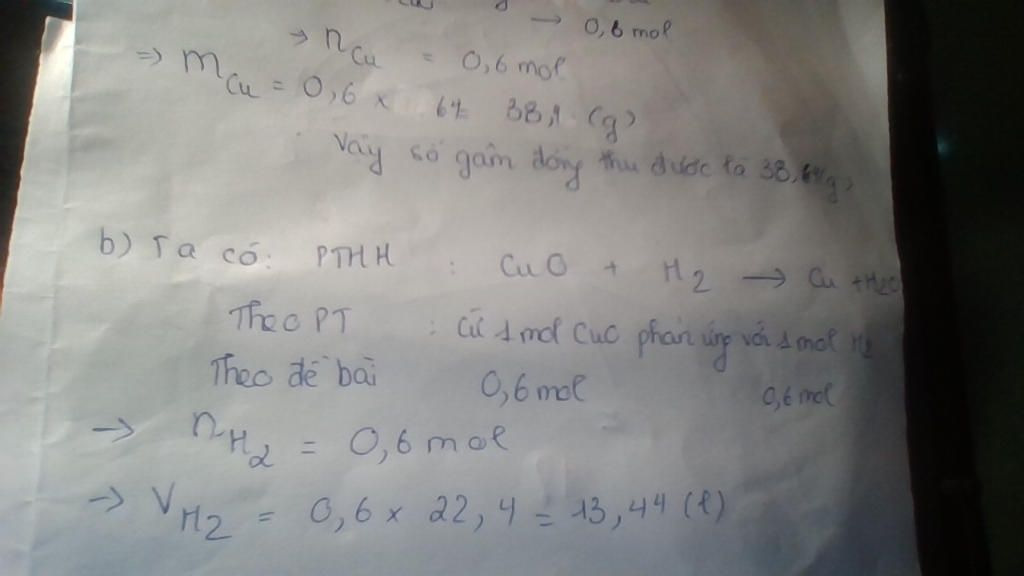 → 0,6 mol
⇒ nCu = 0,6 mol
⇒ mCu = 0,6 × 64 = 38,4 (g)
Vậy số gam đồng thu được là 38,4 g
b) Ta có: PTHH : CuO + H2 → Cu + H2O
Theo PT : Cứ 1 mol CuO phản ứng với 1 mol H2
Theo đề bài 0,6 mol 0,6 mol
→ nH2 = 0,6 mol
→ VH2 = 0,6 × 22,4 = 13,44 (l)